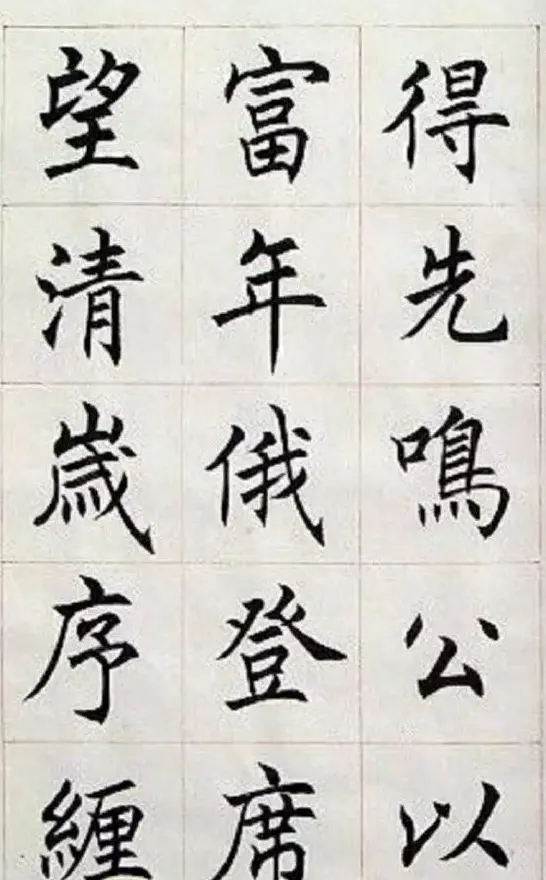 得先鳴公以
富年俄登席
望清歲序纏